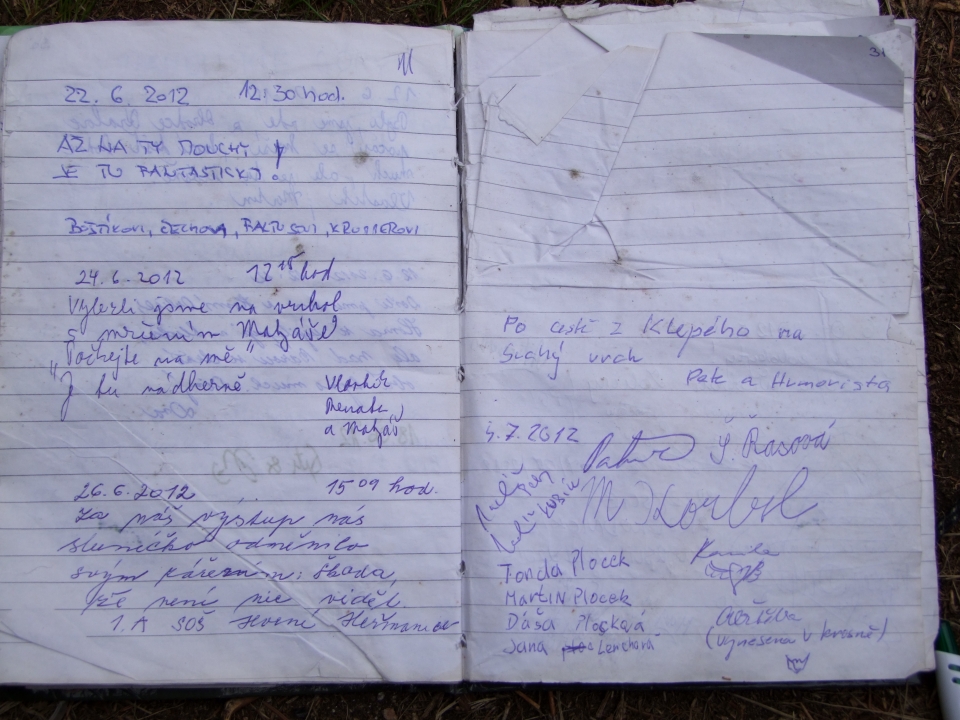 22. 6. 2012 12:30 hod.
AŽ NA TY MOUCHY
JE TO FANTASTICKÝ.
BOŠTÍKOVI, ČECHOVA,
24.6.2012 12 15 hod
Vylezli jsme na vrchol
s mručením Matzáše
"Počkejte na mě"
Je tu nádherně
Renata
a Matzáš
26.6.2012 15 09 hod.
Za náš výstup nás
sluníčko odměnilo
svým zářením: Škoda,
že není nic vidět.
1. A SOŠ Horní Heřmanice
31
Po cestě z Klepého na
Suchý vrch
Pek a Humorista
4.7.2012
Š. Rasová
M Korbel
Kamila
Tonda Plocek
Martin Plocek
Dáša Plocková
Jana Lenchová
(vynesena v krosně)